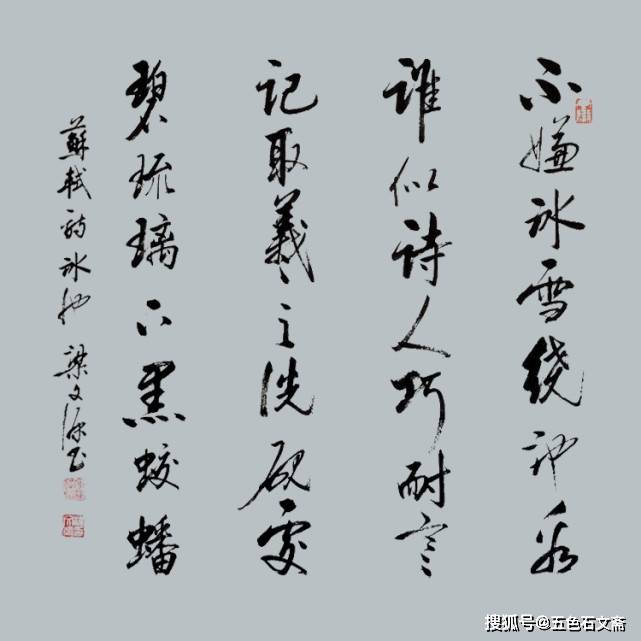 不嫌冰雪绕池看
谁似诗人巧耐寒
记取羲之洗砚處
碧琉璃下黑蛟蟠
蘇軾诗冰池 梁文源书
搜狐号@五色石文斋